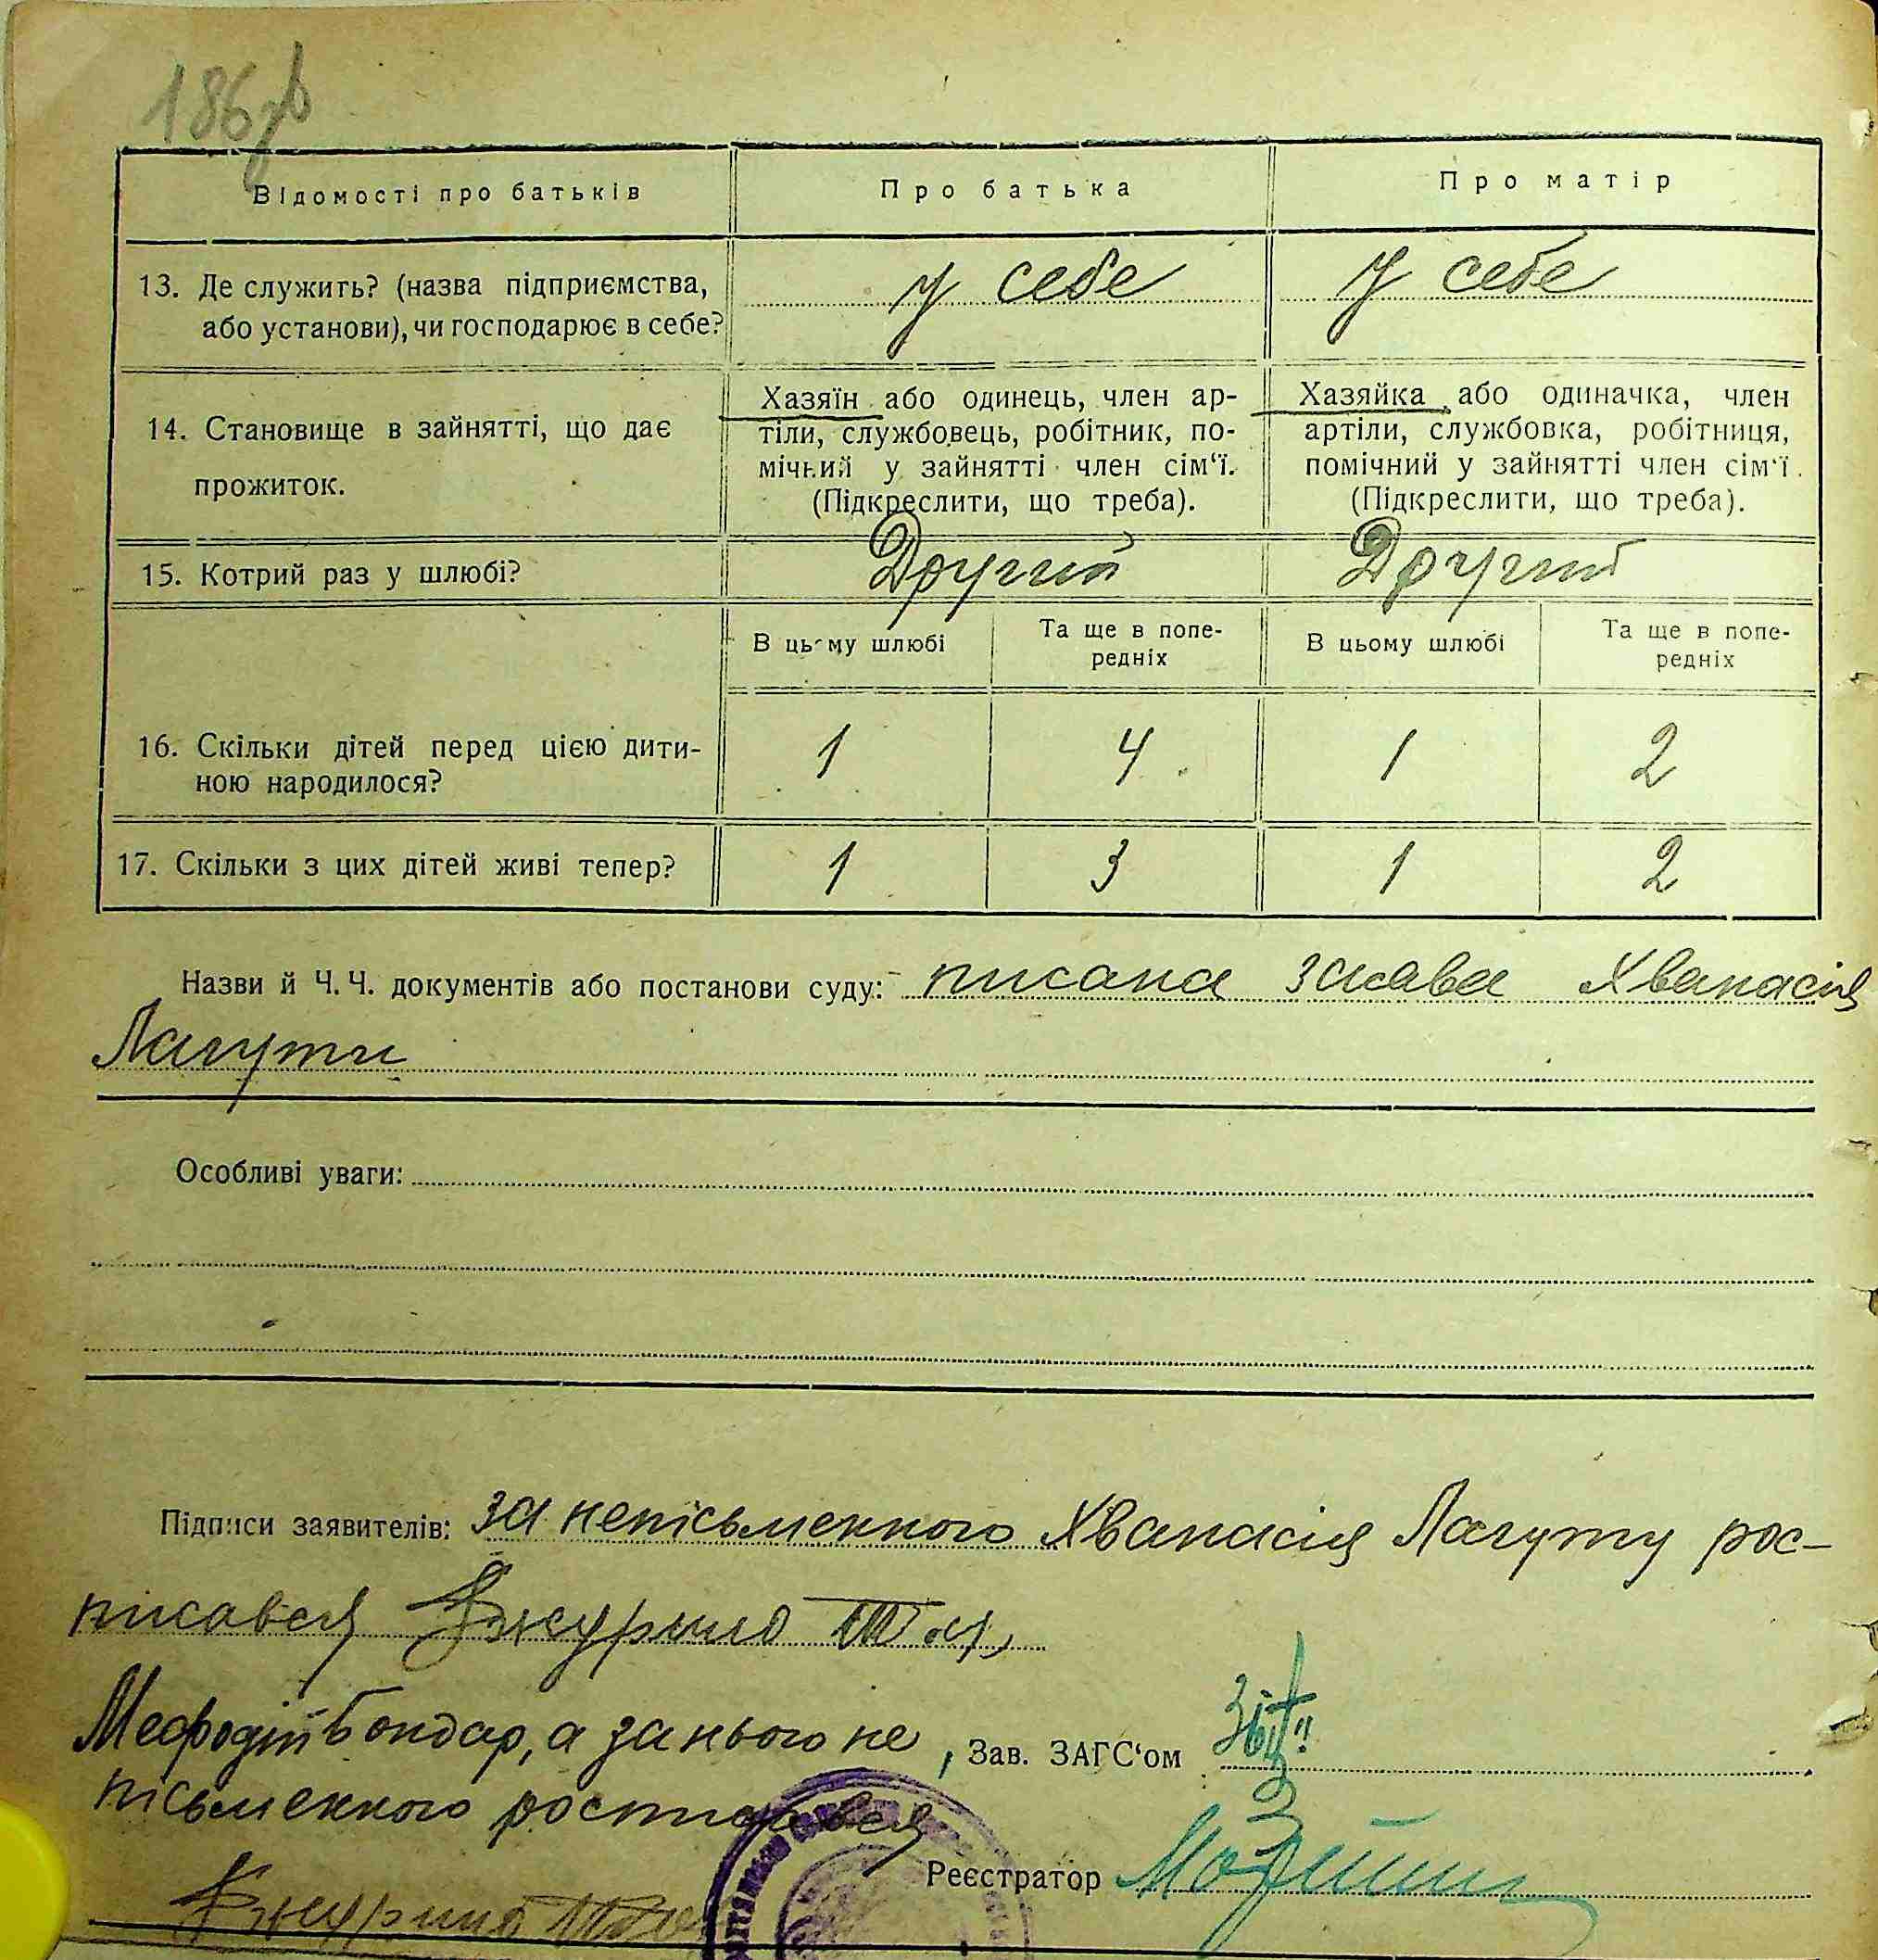 186 зв
Відомості про батьків
Про батька
Про матір
13. Де служить? (назва підприємства,
або установи), чи господарює в себе?
у себе
у себе
14. Становище в зайнятті, що дає
прожиток.
Хазяїн або одинець, член ар-
тіли, службовець, робітник, по-
мічний у зайнятті член сім'ї.
(Підкреслити, що треба).
Хазяйка або одиначка, член
артіли, службовка, робітниця,
помічний у зайнятті член сім'ї.
(Підкреслити, що треба).
15. Котрий раз у шлюбі?
Другий
Другий
В цьому шлюбі
Та ще в попе-
редніх
В цьому шлюбі
Та ще в попе-
редніх
16. Скільки дітей перед цією дити-
ною народилося?
1
4
1
2
17. Скільки з цих дітей живі тепер?
1
3
1
2
Назви й Ч. Ч. документів або постанови суду: писана заява Хванасія
Лагути
Особливі уваги:
Підписи заявителів: за непісьменного Хванасія Лагуту рос-
писався
Мефодій Бондар, а за нього не
пісьменного росписався
Зав. ЗАГС'ом
Реєстратор